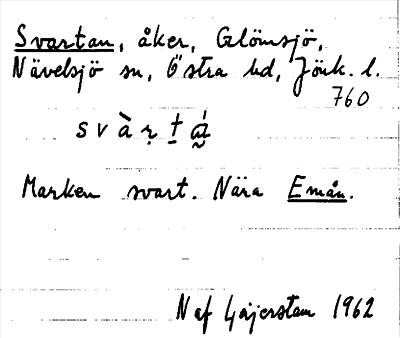 Svartan, åker, Glömsjö,
Nävelsjö sn, Östra hd, Jönk. l.
760
Marken svart. Nära Emån.
N af Gäijerstam 1962